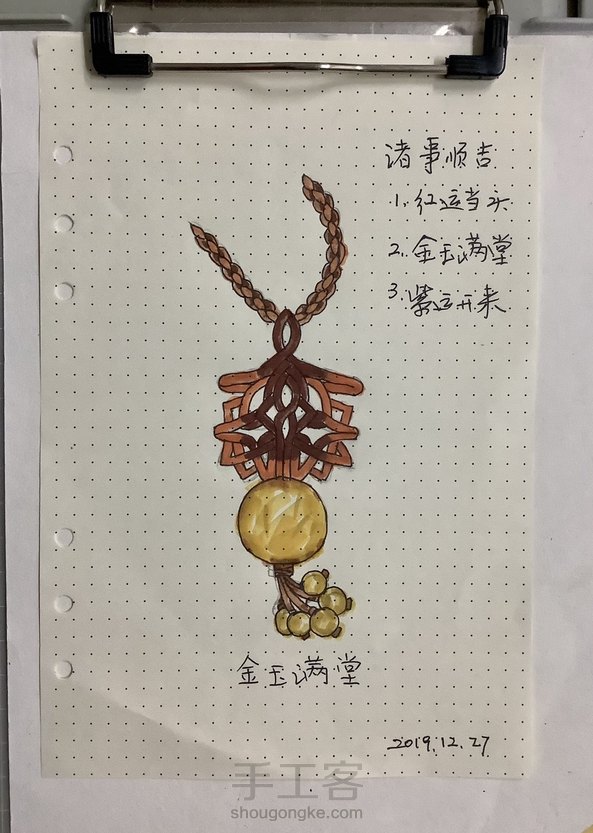 诸事顺吉
1. 红运当头
2. 金玉满堂
3. 紫运开来
金玉满堂
2019.12.27
手工客
shougongke.com